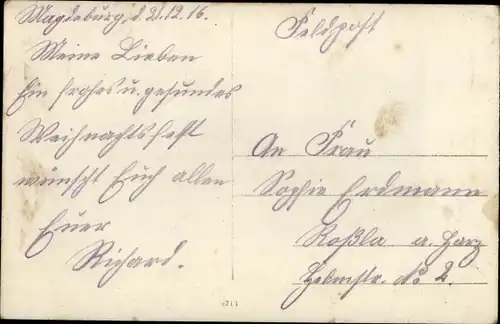 Magdeburg, d. 21.12.16.
Meine Lieben
Ein frohes u. gesundes
Weihnachtsfest
wünscht Euch allen
Euer
Richard.
Feldpost
An Frau
Sophie Erdmann
Roßla a. Harz
Helmstr. No 2.